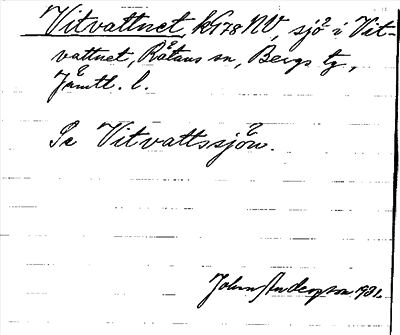 Vitvattnet, kG78NV, sjö i Vit-
vattnet, Råtans sn, Bergs tg,
Jämtl. l.
Se Vitvattssjön.
John Anderson 1931.